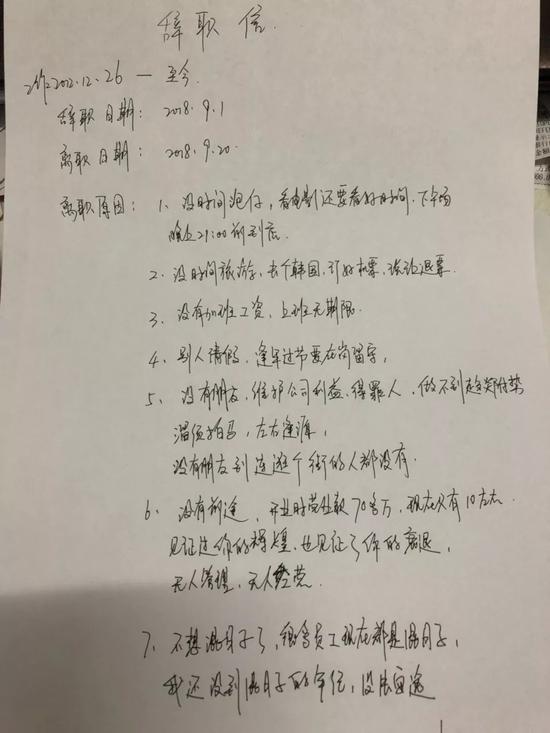 辞职信
工作2012.12.26 — 至今.
辞职日期： 2018.9.1
离职日期： 2018.9.20.
离职原因： 1、没时间泡仔，看电影还要看好时间.下午场
晚上21:00前到底.
2、没时间旅游，去个韩国，订好机票，被迫退票.
3、没有加班工资，上班无期限.
4、别人请假，逢年过节要在岗留守，
5、没有朋友，维护公司利益、得罪人，做不到趋炎附势
溜须拍马，左右逢源，
没有朋友到连逛个街的人都没有.
6、没有前途，开业时营业款70多万，现在只有10左右.
见证过你的辉煌，也见证了你的衰退，
无人管理，无人经营.
7、不想混日子了，很多员工现在都是混日子，
我还没到混日子的年纪，没钱